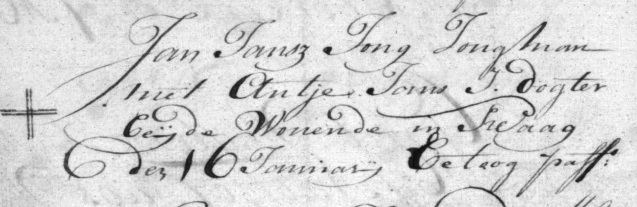 Jan Jansz Jong Jongman
met Antje Jans J. dogter
beijde Wonende in Kaag
den 16 Januarij